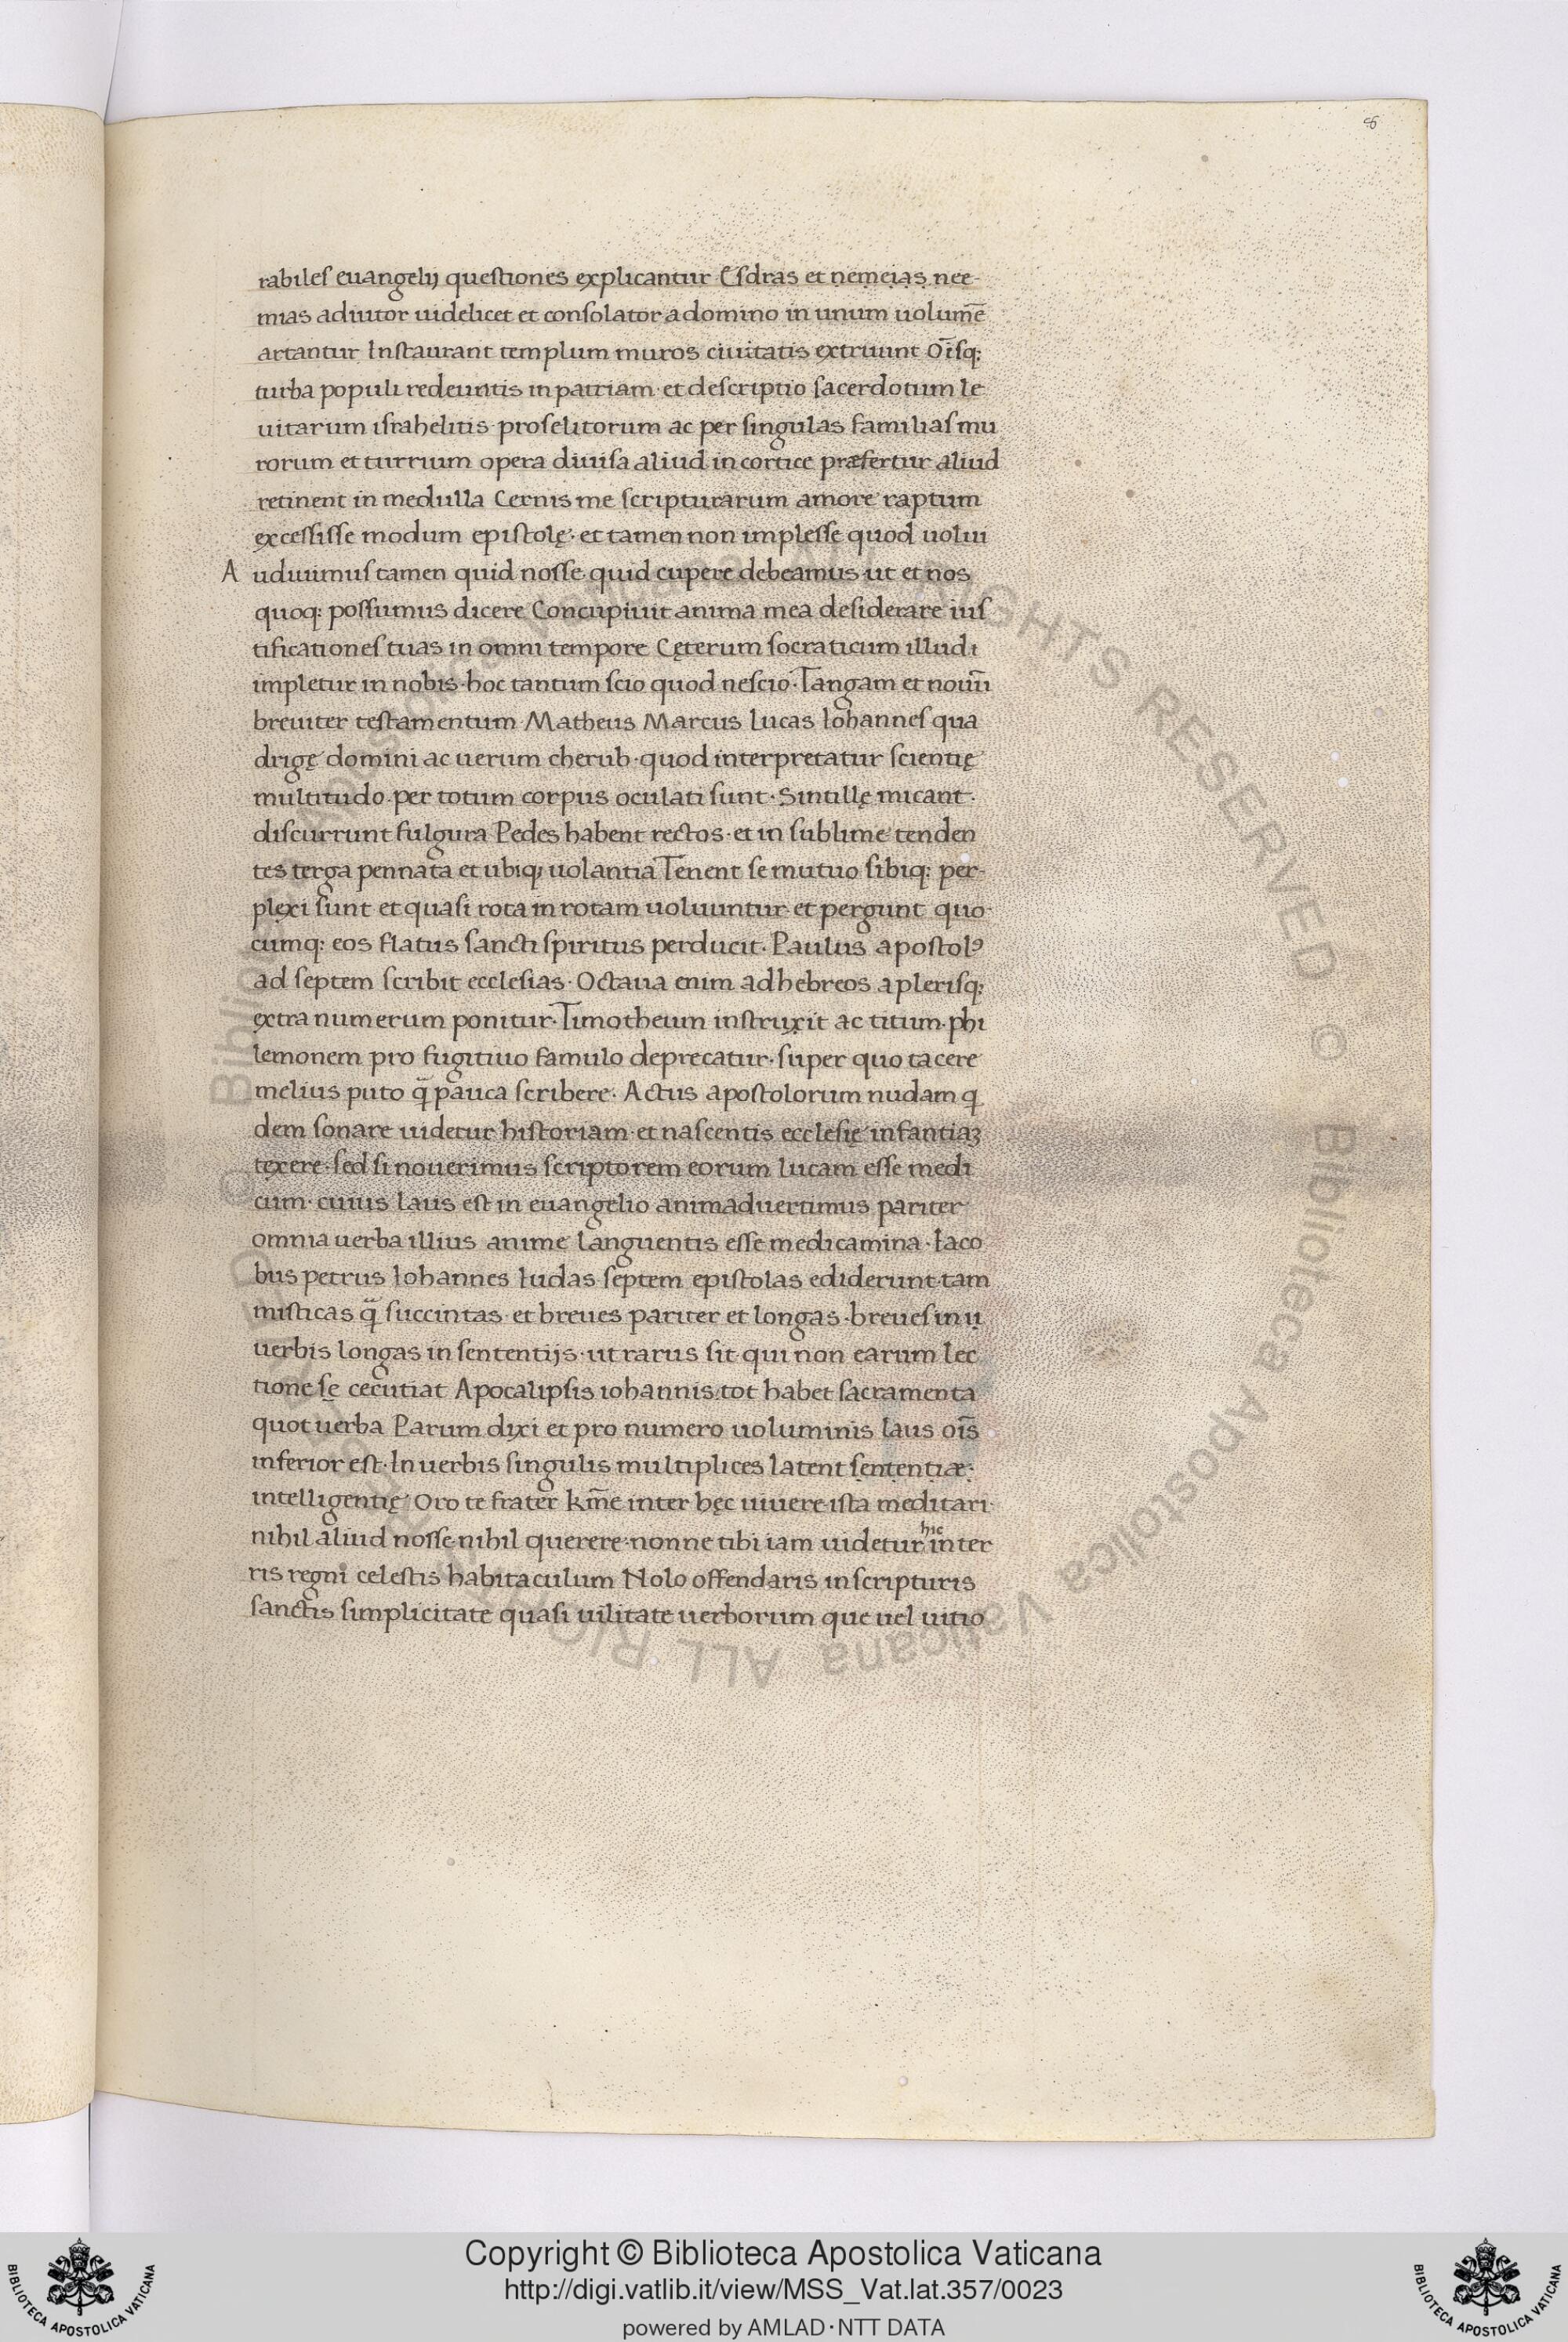 8
rabiles euangelij questiones explicantur Esdras et nemeias nee-
mias adiutor uidelicet et consolator a domino in unum uolumē
artantur Instaurant templum muros ciuitatis extruunt Oīsq:
turba populi redeuntis in patriam· et descriptio sacerdotum le
uitarum israhelitis proselitorum ac per singulas familias mu
rorum et turrium opera diuisa aliud in cortice præfertur aliud
retinent in medulla Cernis me scripturarum amore raptum
excessisse modum epistolę· et tamen non implesse quod uolui
A uduimus tamen quid nosse quid cupere debeamus ut et nos
quoq: possumus dicere Concupiuit anima mea desiderare ius
tificationes tuas in omni tempore Cęterum socraticum illud ı
impletur in nobis· hoc tantum scio quod nescio· Tangam et nouū
breuiter testamentum Matheus Marcus Lucas Iohannes qua
drigę domini ac uerum cherub· quod interpretatur scientię
multitudo· per totum corpus oculati sunt· Sintillę micant·
discurrunt fulgura Pedes habent rectos· et in sublime tenden
tes terga pennata et ubiq; uolantia Tenent se mutuo sibiq: per-
plexi sunt et quasi rota in rotam uoluuntur et pergunt quo
cumq: eos flatus sancti spiritus perduc̄it· Paulus apostolꝰ
ad septem scribit ecclesias· Octaua enim ad hebreos a plerisq:
extra numerum ponitur· Timotheum instruxit ac titum· phi
lemonem pro fugitiuo famulo deprecatur· super quo tacere
melius puto q̄ pauca scribere· Actus apostolorum nudam q
dem sonare uidetur historiam· et nascentis ecclesię infantiaꝫ
texere· sed si nouerimus scriptorem eorum lucam esse medi
cum· cuius laus est in euangelio animaduertimus pariter
omnia uerba illius anime languentis esse medicamina· Iaco
bus petrus Iohannes Iudas septem epistolas ediderunt tam
misticas q̄ succintas· et breues pariter et longas· breues in u
uerbis longas in sententijs· ut rarus sit qui non earum lec
tione se cecutiat Apocalipsis iohannis tot habet sacramenta
quot uerba Parum dixi et pro numero uoluminis laus oīs
inferior est· In uerbis singulis multiplices latent sententiæ·
intelligentię Oro te frater kr̄me inter hęc uiuere· ista meditari·
nihil aliud nosse· nihil querere· nonne tibi iam uidetur hic in ter
ris regni celestis habitaculum Nolo offendaris in scripturis
sanctis simplicitate quasi uilitate uerborum que uel uitio
© Biblioteca Apostolica Vaticana ALL RIGHTS RESERVED
Copyright © Biblioteca Apostolica Vaticana
http://digi.vatlib.it/view/MSS_Vat.lat.357/0023
powered by AMLAD·NTT DATA
BIBLIOTECA APOSTOLICA VATICANA
BIBLIOTECA APOSTOLICA VATICANA